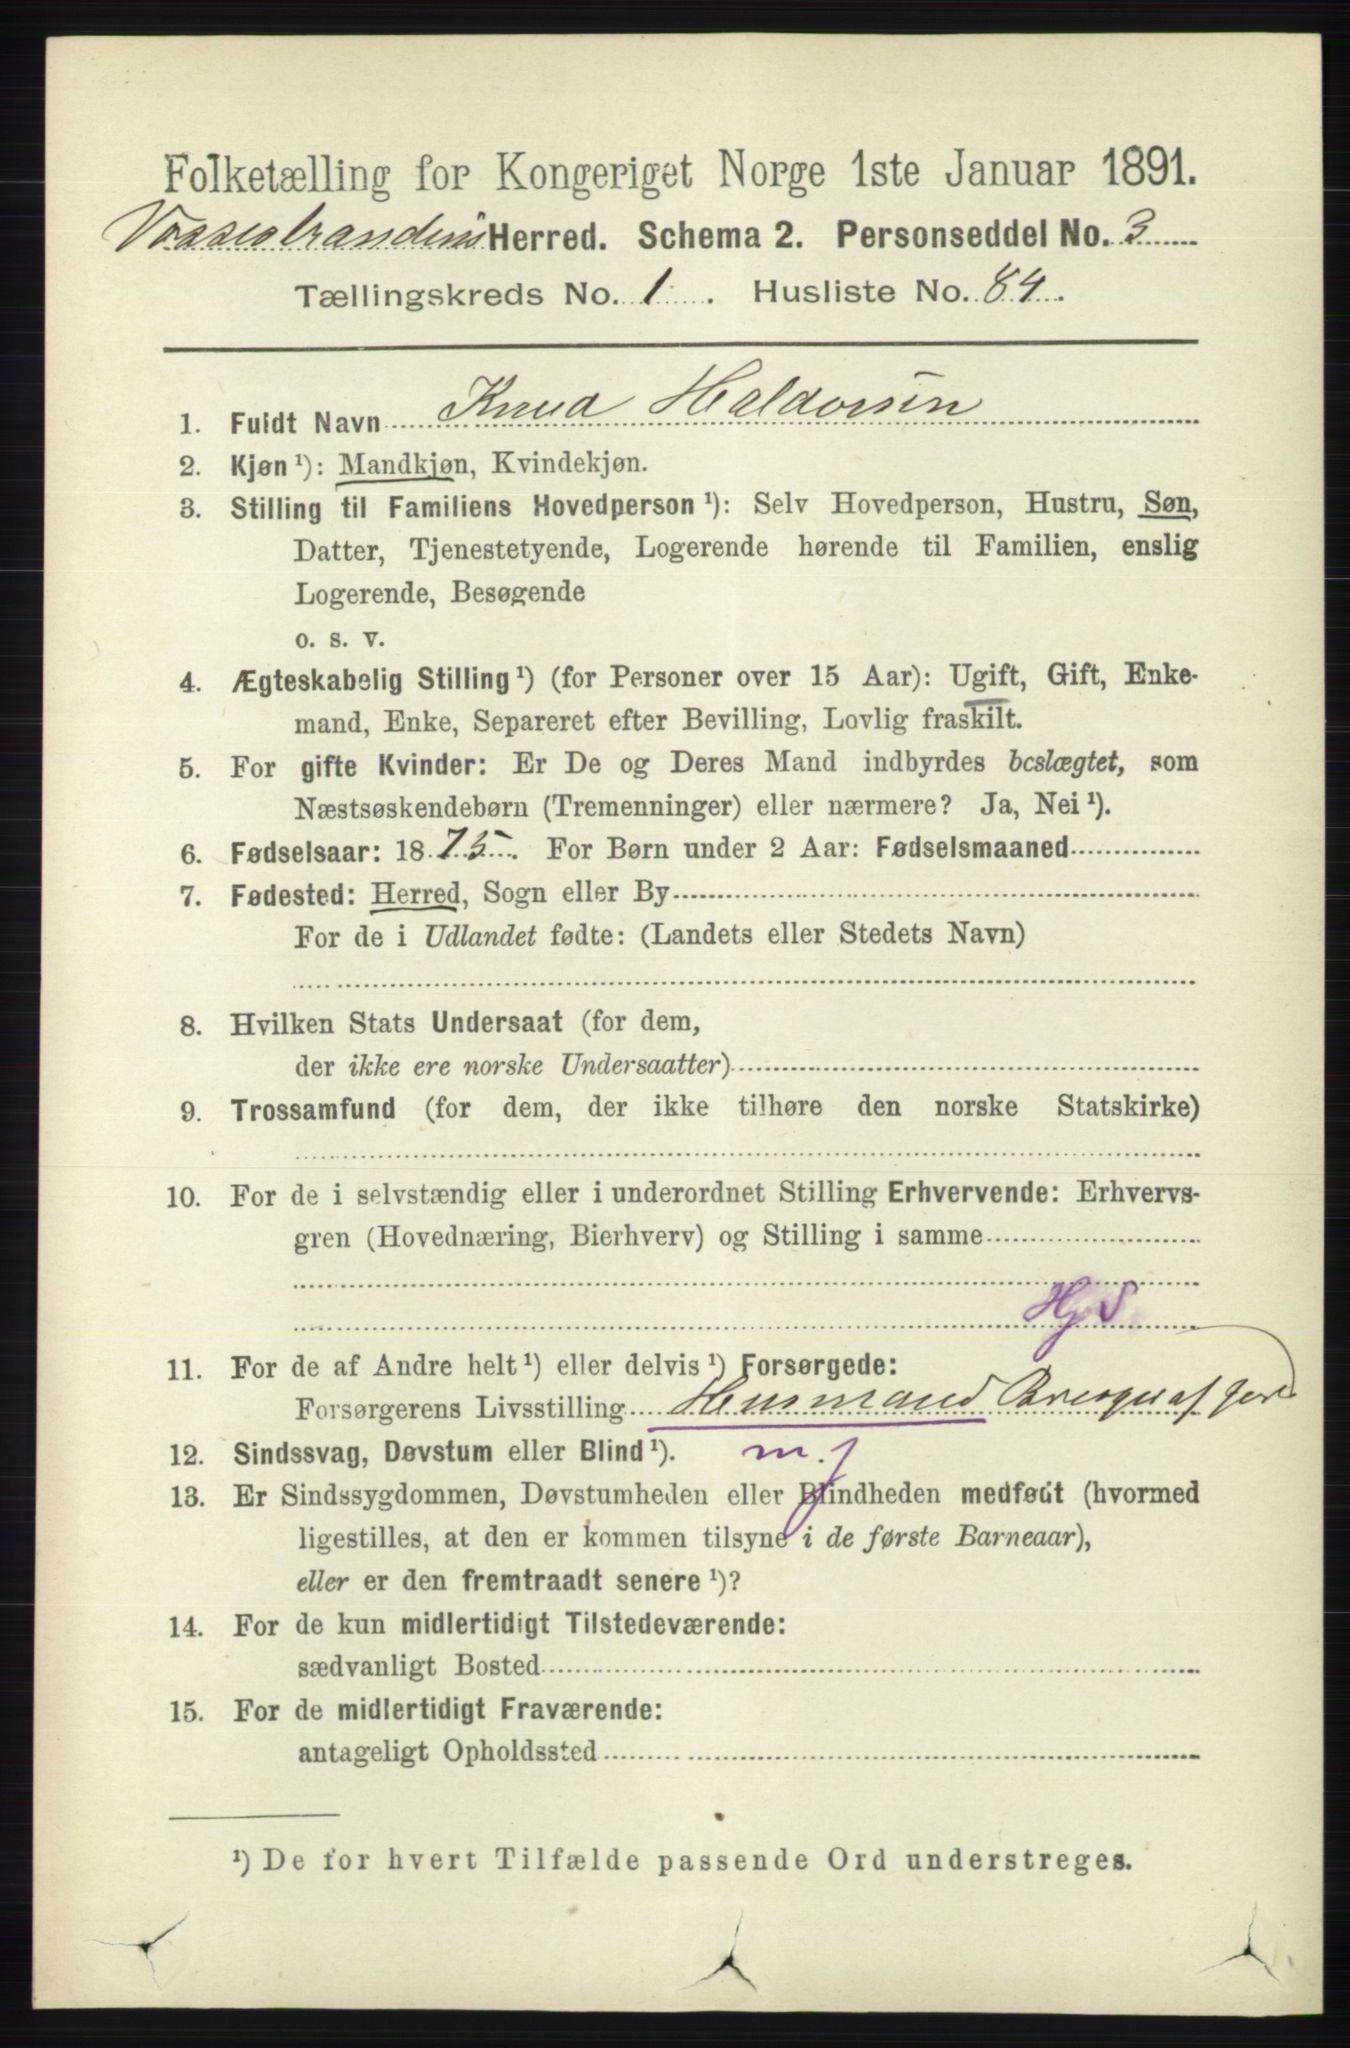 Folketælling for Kongeriget Norge 1ste Januar 1891.
Vossestrandens Herred. Schema 2. Personseddel No. 3
Tællingskreds No. 1. Husliste No. 84.
1. Fuldt Navn Knud Haldorsen
2. Kjøn ¹): Mandkjøn, Kvindekjøn.
3. Stilling til Familiens Hovedperson ¹): Selv Hovedperson, Hustru, Søn,
Datter, Tjenestetyende, Logerende hørende til Familien, enslig
Logerende, Besøgende
o. s. v.
4. Ægteskabelig Stilling ¹) (for Personer over 15 Aar): Ugift, Gift, Enke-
mand, Enke, Separeret efter Bevilling, Lovlig fraskilt.
5. For gifte Kvinder: Er De og Deres Mand indbyrdes beslægtet, som
Næstsøskendebørn (Tremenninger) eller nærmere? Ja, Nei ¹).
6. Fødselsaar: 1875. For Børn under 2 Aar: Fødselsmaaned
7. Fødested: Herred, Sogn eller By
For de i Udlandet fødte: (Landets eller Stedets Navn)
8. Hvilken Stats Undersaat (for dem,
der ikke ere norske Undersaatter)
9. Trossamfund (for dem, der ikke tilhøre den norske Statskirke)
10. For de i selvstændig eller i underordnet Stilling Erhvervende: Erhvervs-
gren (Hovednæring, Bierhverv) og Stilling i samme
HjS
11. For de af Andre helt ¹) eller delvis ¹) Forsørgede:
Forsørgerens Livsstilling Husmand af jord
12. Sindssvag, Døvstum eller Blind ¹). m.j
13. Er Sindssygdommen, Døvstumheden eller Blindheden medfødt (hvormed
ligestilles, at den er kommen tilsyne i de første Barneaar),
eller er den fremtraadt senere ¹)?
14. For de kun midlertidigt Tilstedeværende:
sædvanligt Bosted
15. For de midlertidigt Fraværende:
antageligt Opholdssted
¹) De for hvert Tilfælde passende Ord understreges.